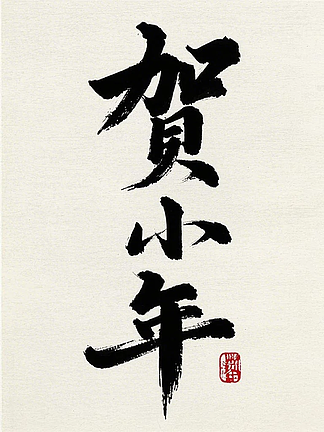 贺小年